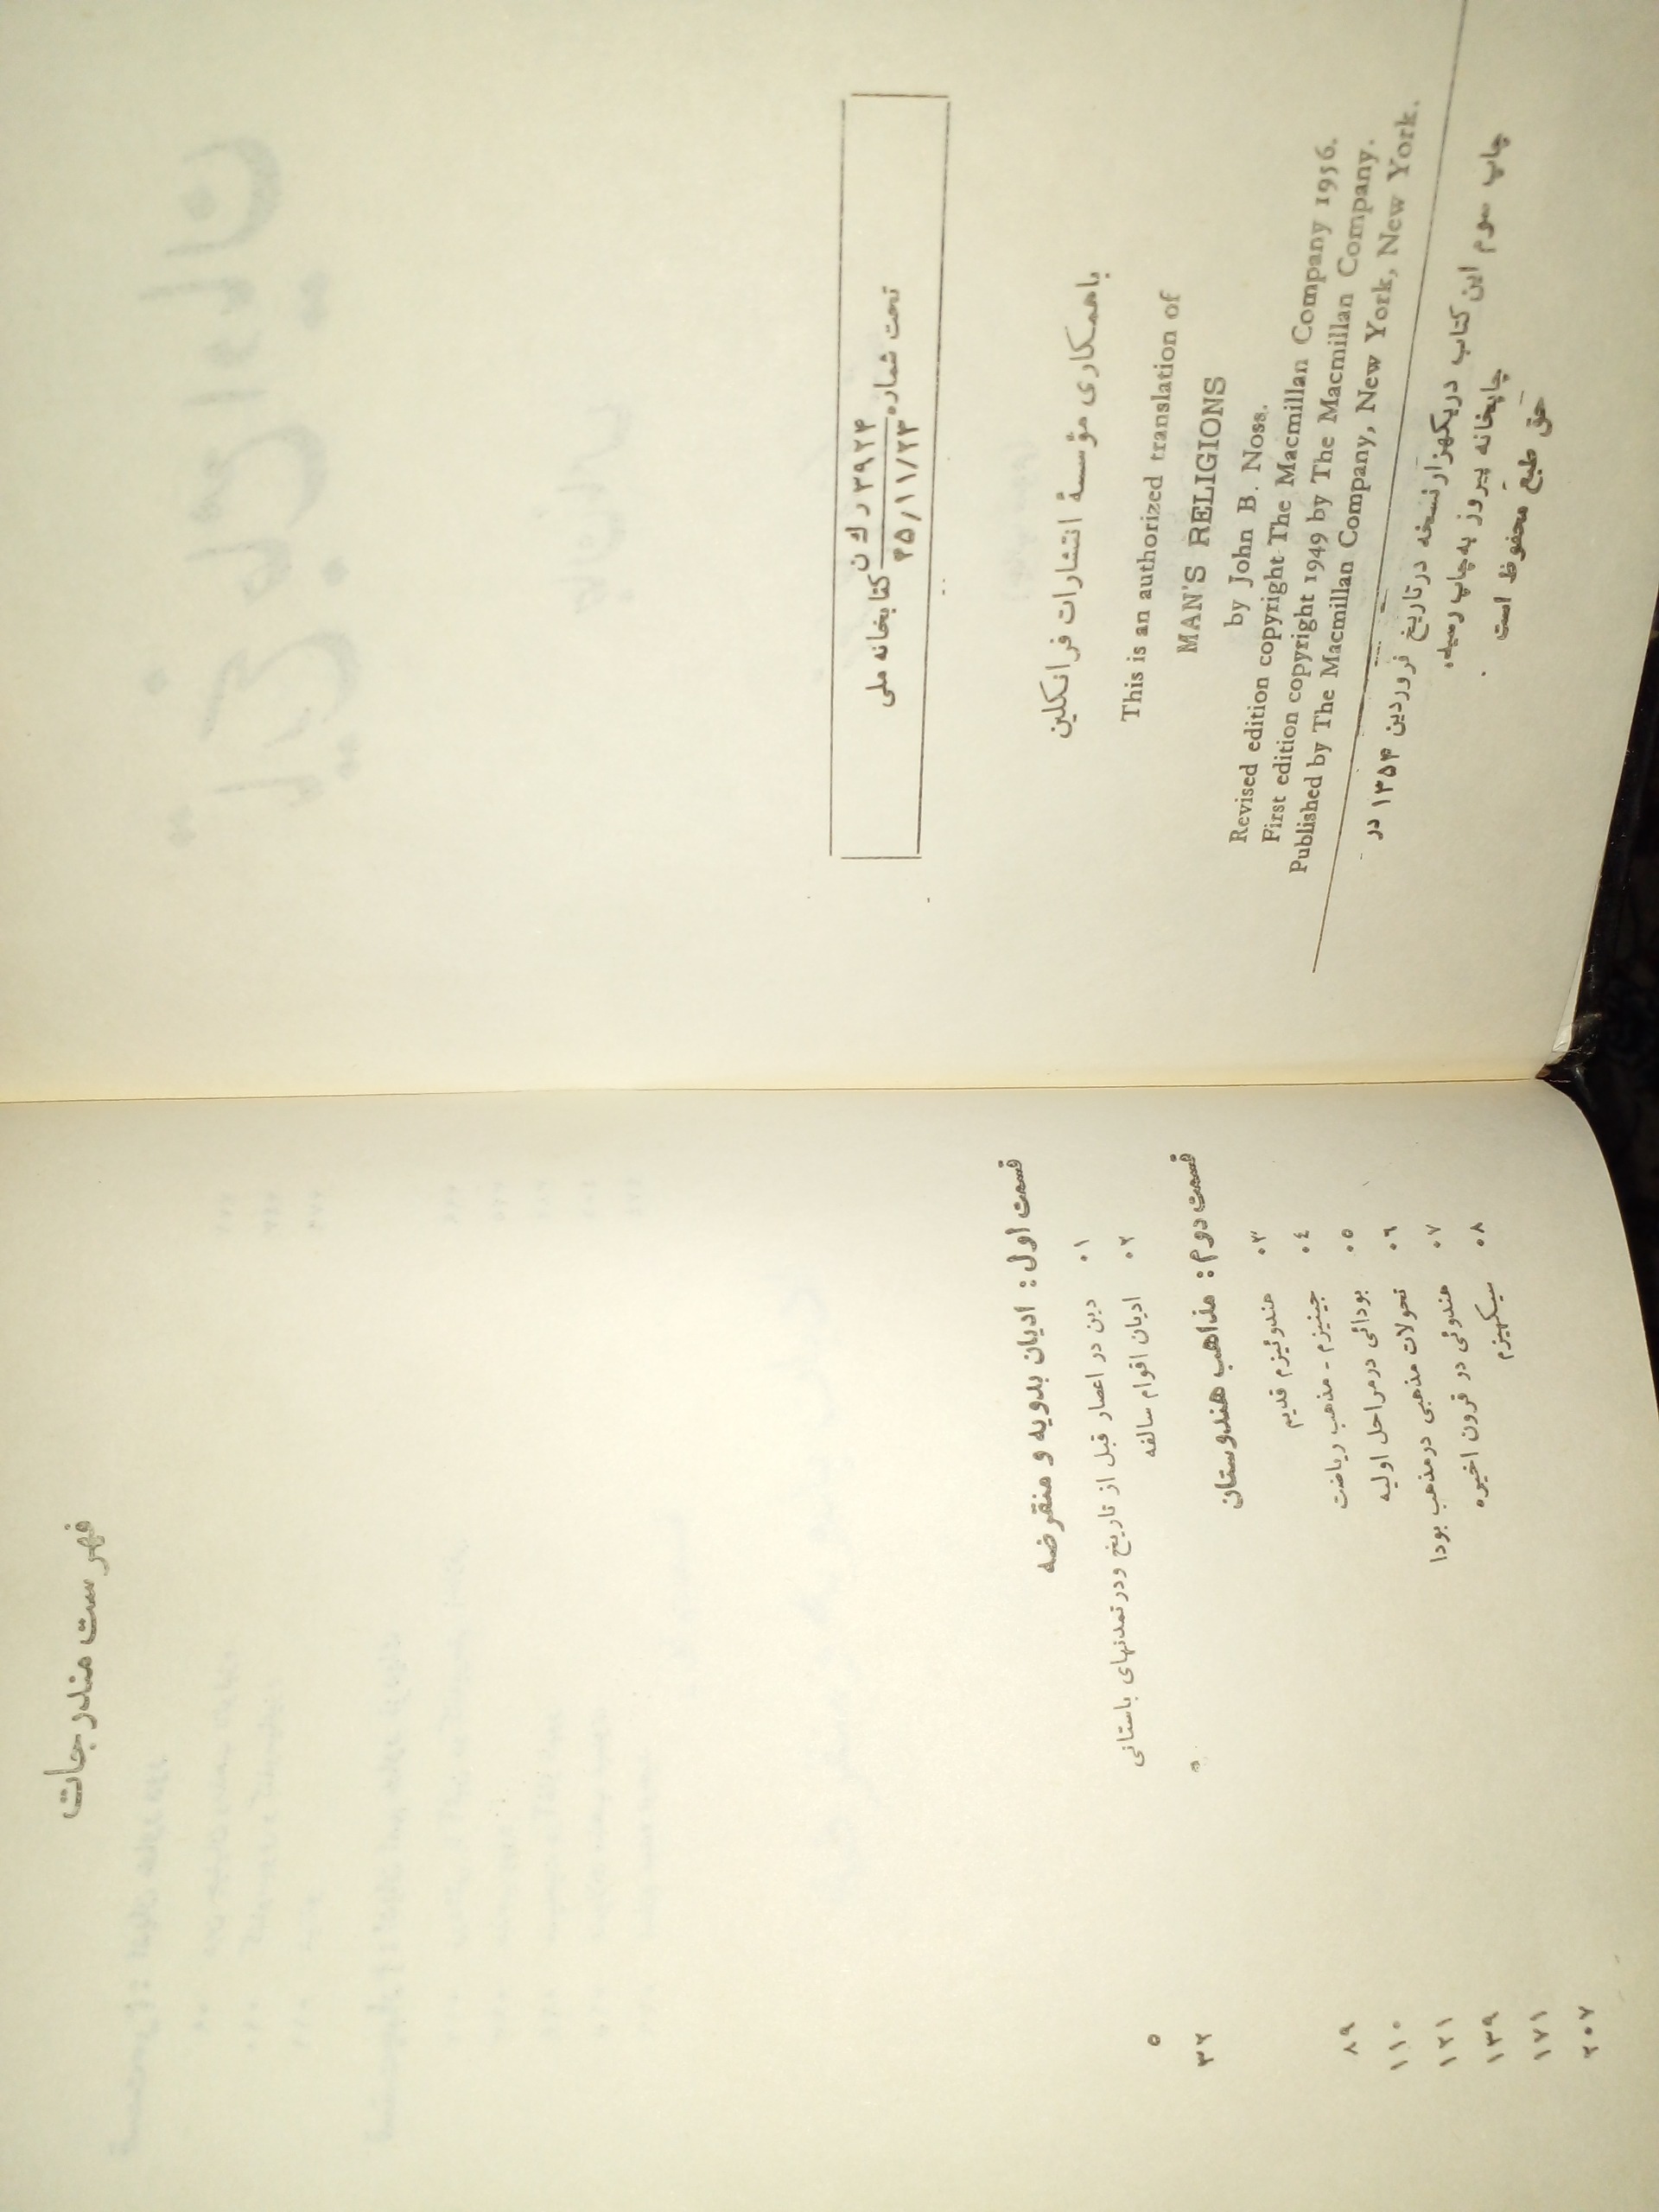 تحت شماره ۳۹۲۴ ر ك ن کتابخانه ملی
۳۵/۱۱/۲۳
باهمکاری مؤسسهٔ انتشارات فرانکلین
This is an authorized translation of
MAN'S RELIGIONS
by John B. Noss.
Revised edition copyright The Macmillan Company 1956.
First edition copyright 1949 by The Macmillan Company.
Published by The Macmillan Company, New York, New York.
چاپ سوم این کتاب دریکهزار نسخه درتاریخ فروردین ۱۳۵۴ در
چاپخانه پیروز به‌چاپ رسید.
حق طبع محفوظ است
فهرست مندرجات
قسمت اول: ادیان بدویه و منقرضه
۰۱ دین در اعصار قبل از تاریخ ودر تمدنهای باستانی ۵
۰۲ ادیان اقوام سالفه ۳۲
قسمت دوم: مذاهب هندوستان
۰۳ هندوئیزم قدیم ۸۹
۰٤ جینیزم - مذهب ریاضت ۱۱۰
۰۵ بودائی درمراحل اولیه ۱۲۱
۰٦ تحولات مذهبی درمذهب بودا ۱۳۹
۰۷ هندوئی در قرون اخیره ۱۷۱
۰۸ سیکهیزم ۲۰۷